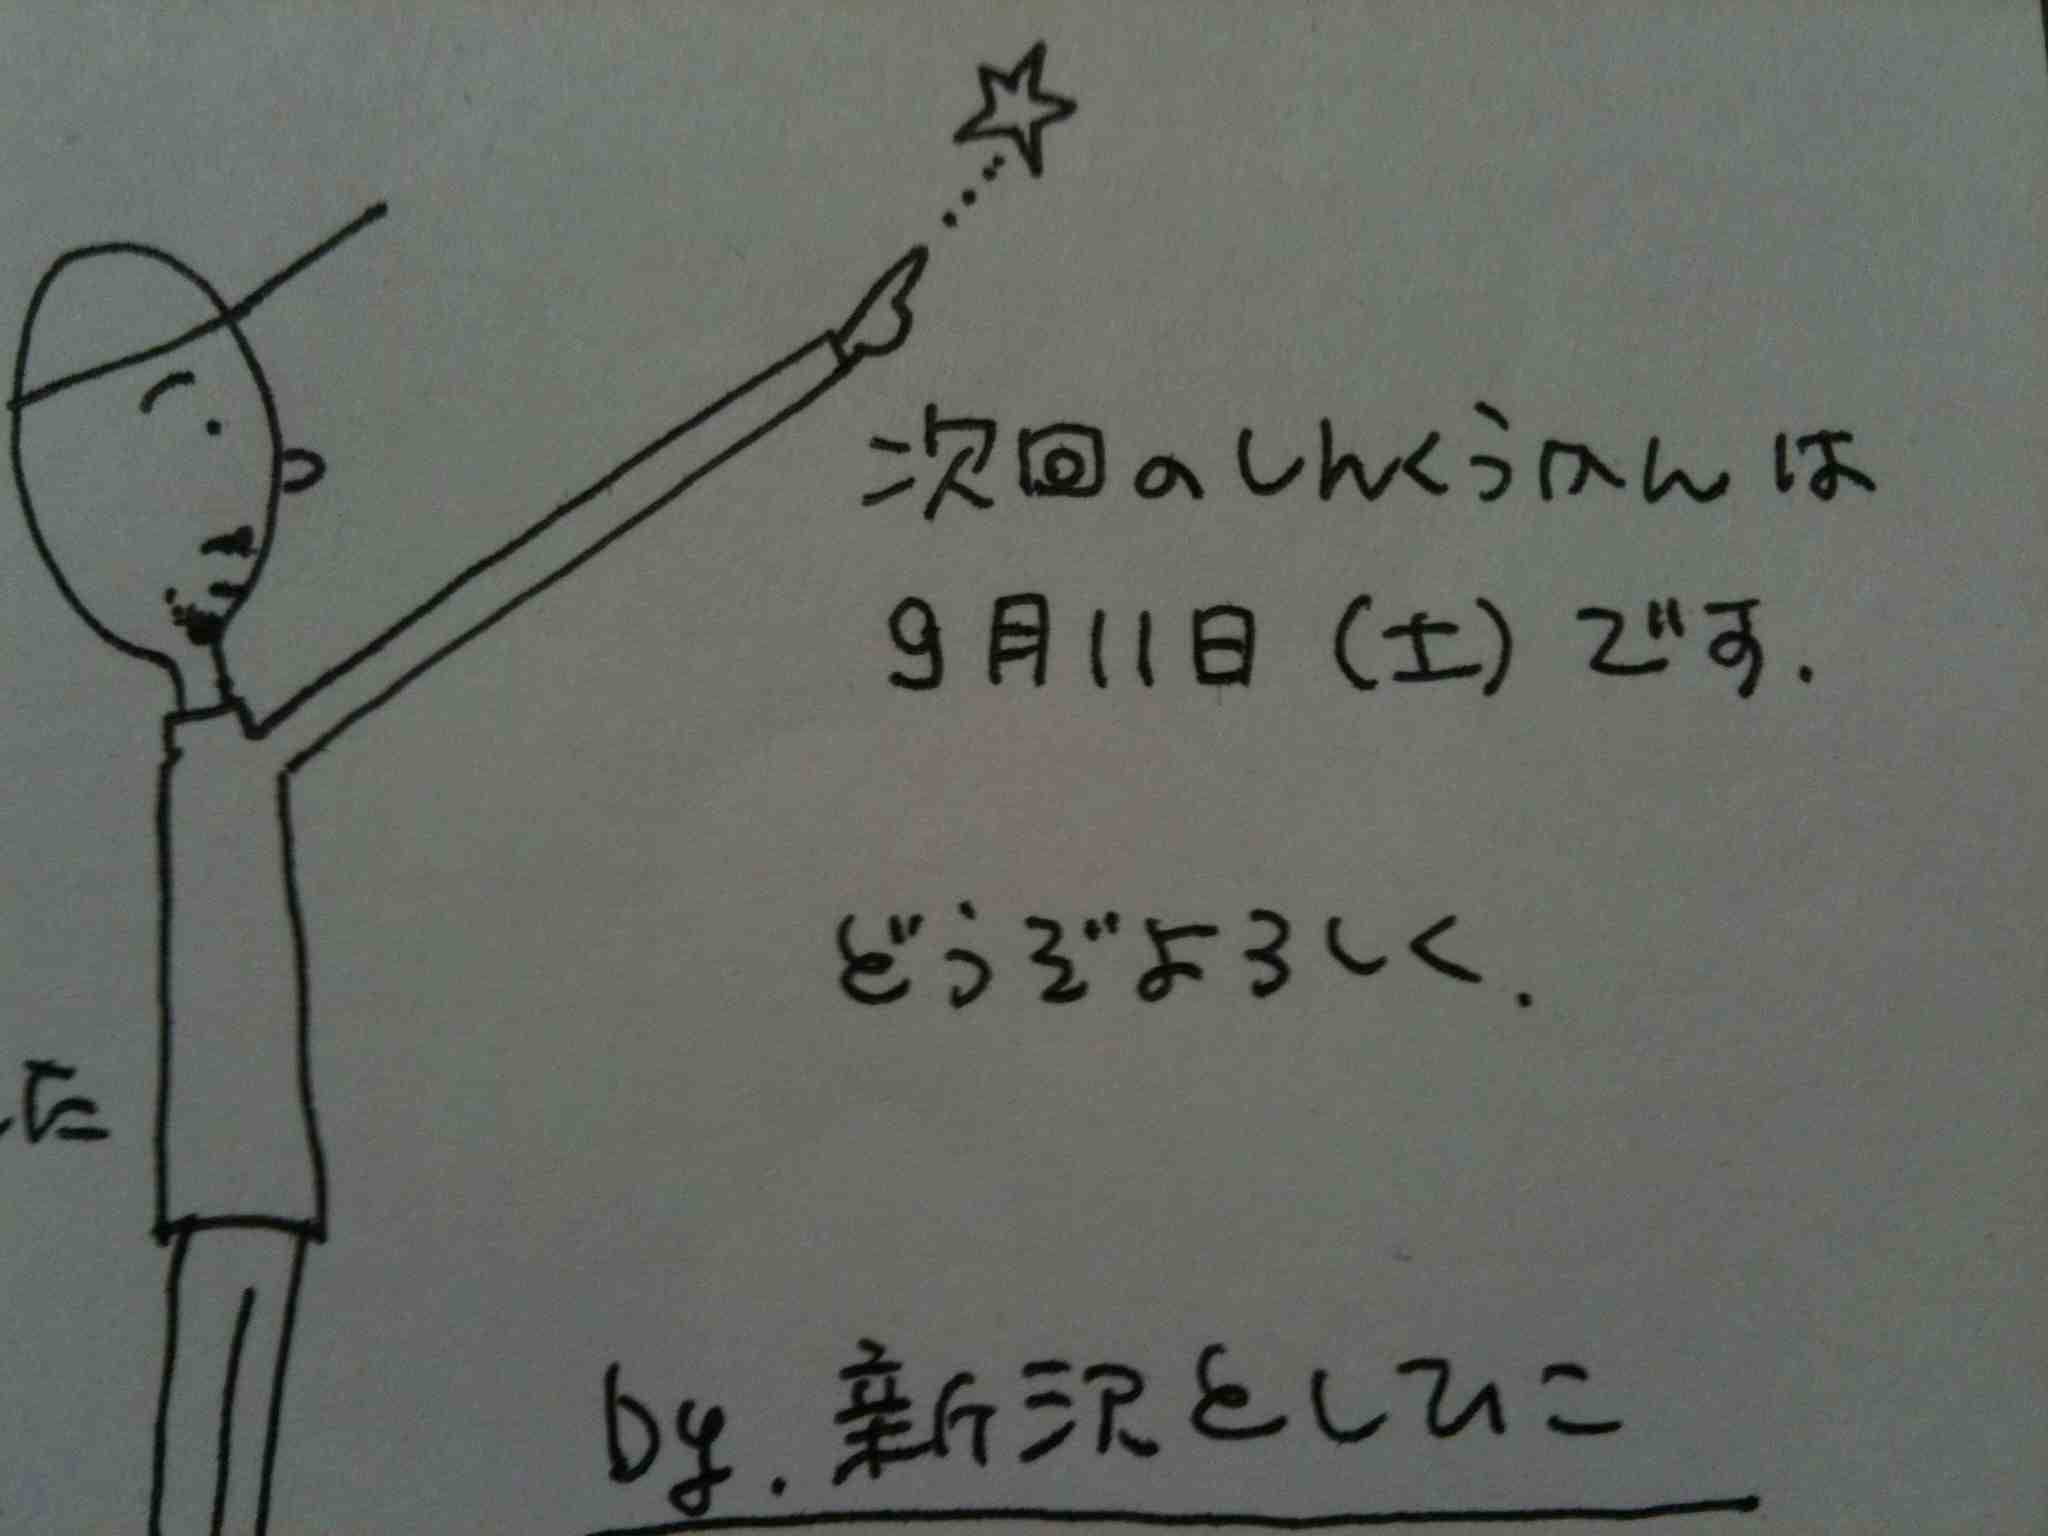 次回のしんくうかんは
9月11日（土）です.
どうぞよろしく.
した
by. 新沢としひこ